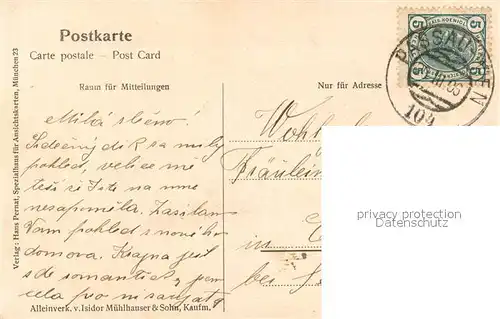 Postkarte
Carte postale — Post Card
Raum für Mitteilungen
Nur für Adresse
5 5
5 5
PASSAU
104
Milá slečno!
Srdečný dík za milý
pohled, velice mě
těší že jste na mne
nezapoměla. Zasílám
Vám pohled z nového
domova. Krajina jest
zde romantická, jen
Fräulein
in
bei
Verlag: Hans Pernat, Spezialhaus für Ansichtskarten, München 23
Alleinverk. v. Isidor Mühlhauser & Sohn, Kaufm.
privacy protection
Datenschutz